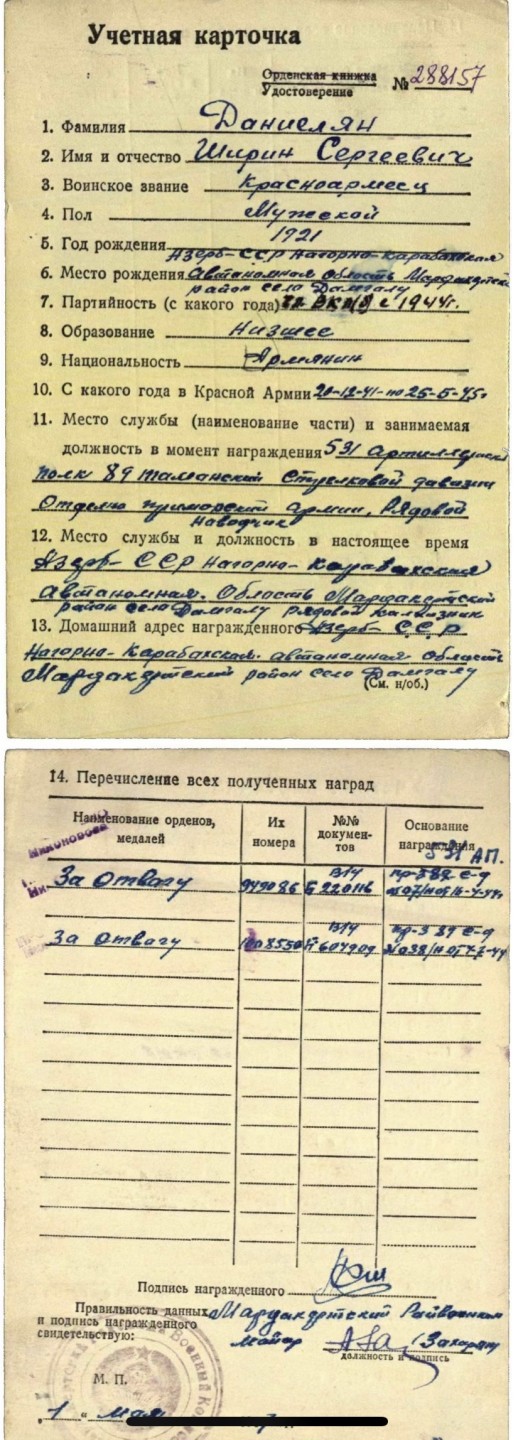 Учетная карточка
Орденская книжка
Удостоверение № 288157
1. Фамилия Даниелян
2. Имя и отчество Ширин Сергеевич
3. Воинское звание Красноармеец
4. Пол Мужской
5. Год рождения 1921
Азерб-ССР Нагорно-Карабахская
6. Место рождения Автаномная область Мардакертский
район село Дамгалу
7. Партийность (с какого года) ВКП(б) с 1944г.
8. Образование Низшее
9. Национальность Армянин
10. С какого года в Красной Армии 20-12-41-по 25-5-45г
11. Место службы (наименование части) и занимаемая
должность в момент награждения 531 Артиллерийский
полк 89 таманский Стрелковой дивизии
Отделю приморский армии, Рядовой
Наводчик
12. Место службы и должность в настоящее время
Азерб-ССР Нагорно-Карабахская
Автаномная. Область Мардакертский
район село Дамгалу рядовой колхозник
13. Домашний адрес награжденного Азерб-ССР
Нагорно-Карабахская. автаномная область
Мардакертский район село Дамгалу
(См. н/об.)
14. Перечисление всех полученных наград
Наименование орденов, медалей
Их номера
№№ документов
Основание награждения
531 АП.
За Отвагу 949086 Б 220116
За Отвагу Б 604909
Подпись награжденного
Правильность данных Мардакертский Райвоенком
и подпись награжденного
свидетельствую: Майор (Захарян)
должность и подпись
М. П.
„1“ мая